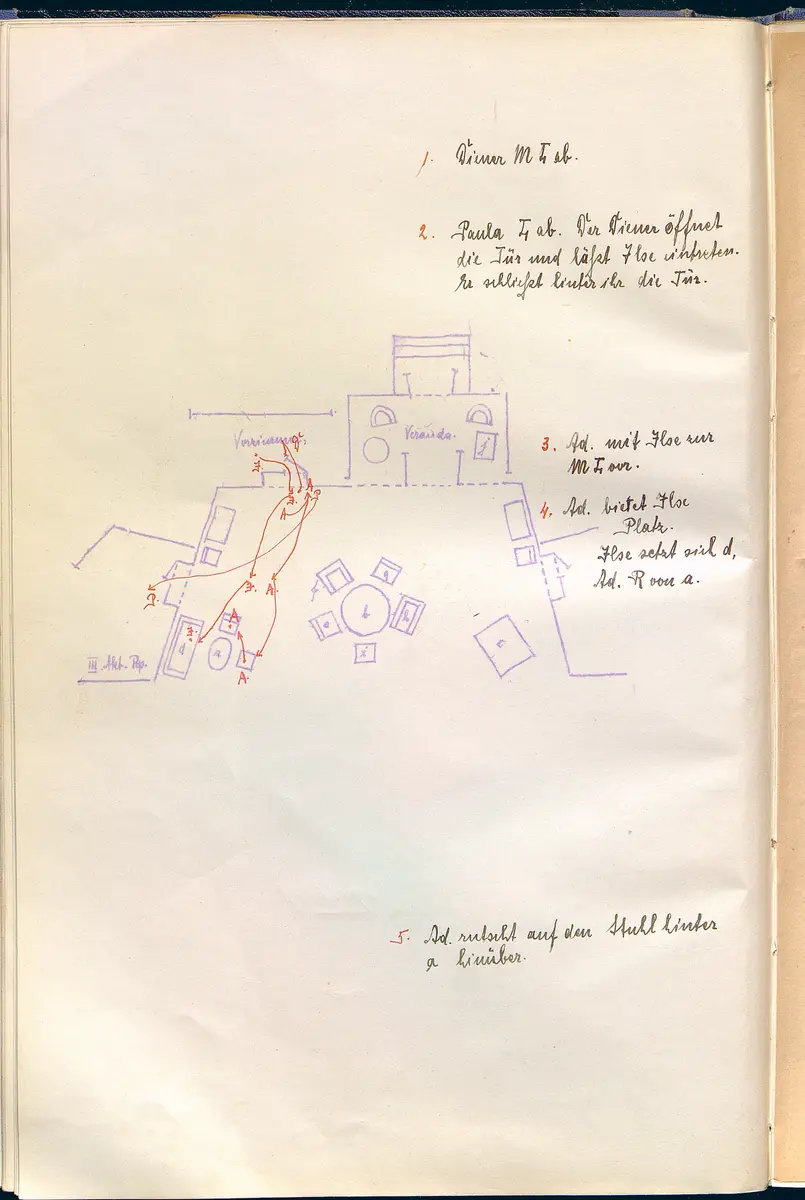 1. Diener M T ab.
2. Paula T ab. Der Diener öffnet
die Tür und läßt Ilse eintreten.
Er schließt hinter ihr die Tür.
Verauda.
3. Ad. mit Ilse zur
M T vor.
4. Ad. bietet Ilse
Platz.
Ilse setzt sich d,
Ad. R von a.
A
A
A.
A
A.
d
a
b
III. Akt.
5. Ad. rutscht auf den Stuhl hinter
a hinüber.